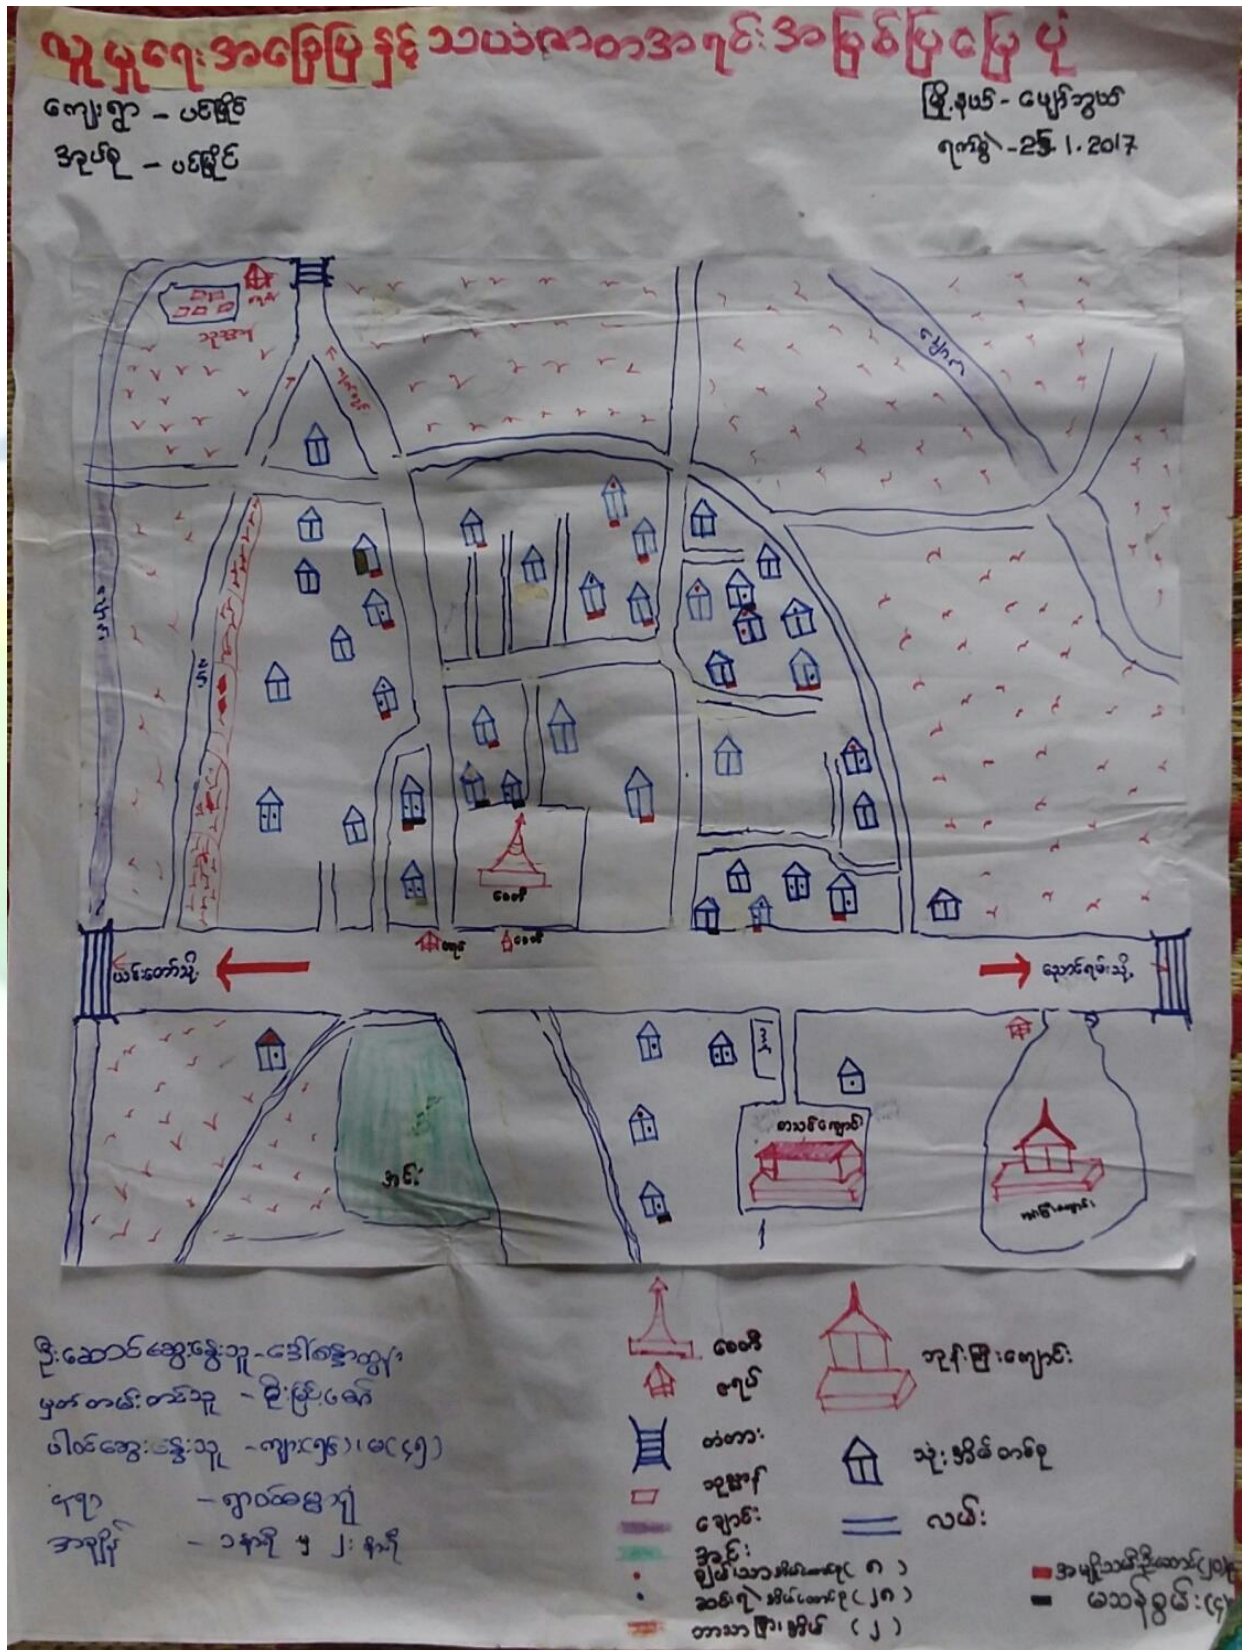 လူမှုရေးအခြေပြနှင့်သယံဇာတအရင်းအမြစ်ပြမြေပုံ
ကျေးရွာ - ပင်မြိုင်
အုပ်စု - ပင်မြိုင်
မြို့နယ် - ပျော်ဘွယ်
ရက်စွဲ - 25.1.2017
စေတီ
စေတီ
ယင်းတော်သို့
ညောင်ရမ်းသို့
အင်း
စာသင်ကျောင်း
ဘုန်းကြီးကျောင်း
ဦးဆောင်ဆွေးနွေးသူ -
မှတ်တမ်းတင်သူ -
ပါဝင်ဆွေးနွေးသူ - ကျား(၅၆)၊ မ(၄၅)
နေရာ -
အချိန် - ၁နာရီ မှ ၂း နာရီ
စေတီ
ဇရပ်
တံတား
သုဿာန်
ချောင်း
အင်း
ချမ်းသာအိမ်ထောင်စု( ၈ )
ဆင်းရဲအိမ်ထောင်စု(၂၈)
(၂)
ဘုန်းကြီးကျောင်း
သုံးအိမ်တစ်စု
လမ်း
အမျိုးသမီးဦးဆောင်(၂၀)စု
မသန်စွမ်း(၄)